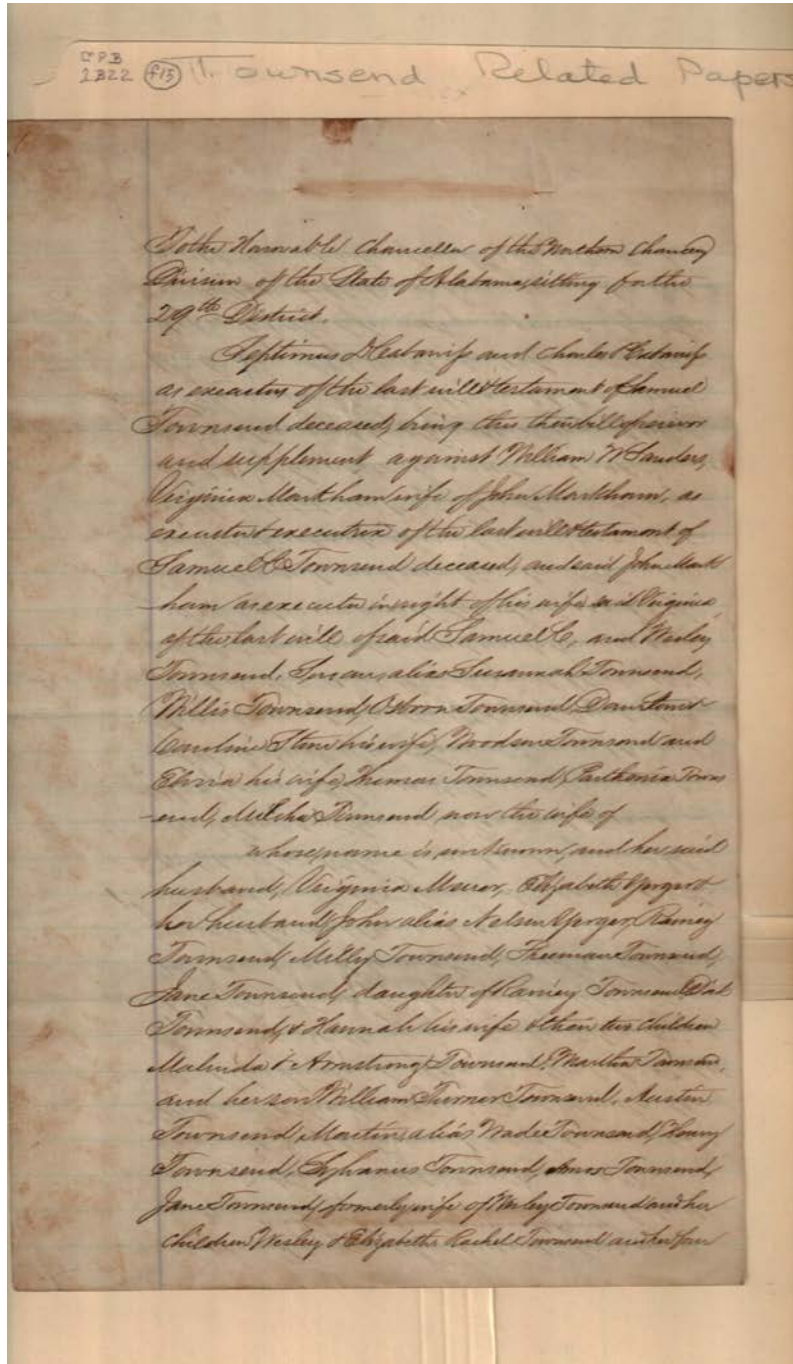 CPB
2B22 f15 Townsend Related Papers
To the Honorable Chancellor of the Northern Chancery
Division of the State of Alabama, sitting for the
29th District.
Septimus D Cabaniss and Charles Cabaniss
as executors of the last will & testament of Samuel
Townsend deceased, bring this their bill of revivor
and supplement against William W Sanders,
Virginia Markham wife of John Markham, as
executor & executrix of the last will & testament of
Samuel C Townsend deceased, and said John Mark
-ham as executor in right of his wife, said Virginia
of the last will of said Samuel C, and Wesley
Townsend, Susan, alias Susannah Townsend,
Willis Townsend, Osborn Townsend, &
Caroline Stone his wife, Woodson Townsend and
Elvira his wife, Thomas Townsend, Parthenia Towns
-end, Townsend, now the wife of
whose name is unknown, and her said
husband, Virginia Elizabeth Yerger &
her husband, John alias Nelson Yerger, Rainey
Townsend, Milly Townsend, Freeman Townsend,
Jane Townsend, daughter of Rainey Townsend,
Townsend, & Hannah his wife & their two children
Malinda & Armstrong Townsend, Martha Townsend,
and her son William Turner Townsend, Austin
Townsend, Martin, alias Wade Townsend, Henry
Townsend, Sylvanus Townsend, Amos Townsend,
Jane Townsend, formerly wife of Wesley Townsend and her
children Wesley & Elizabeth, Rachel Townsend and her four